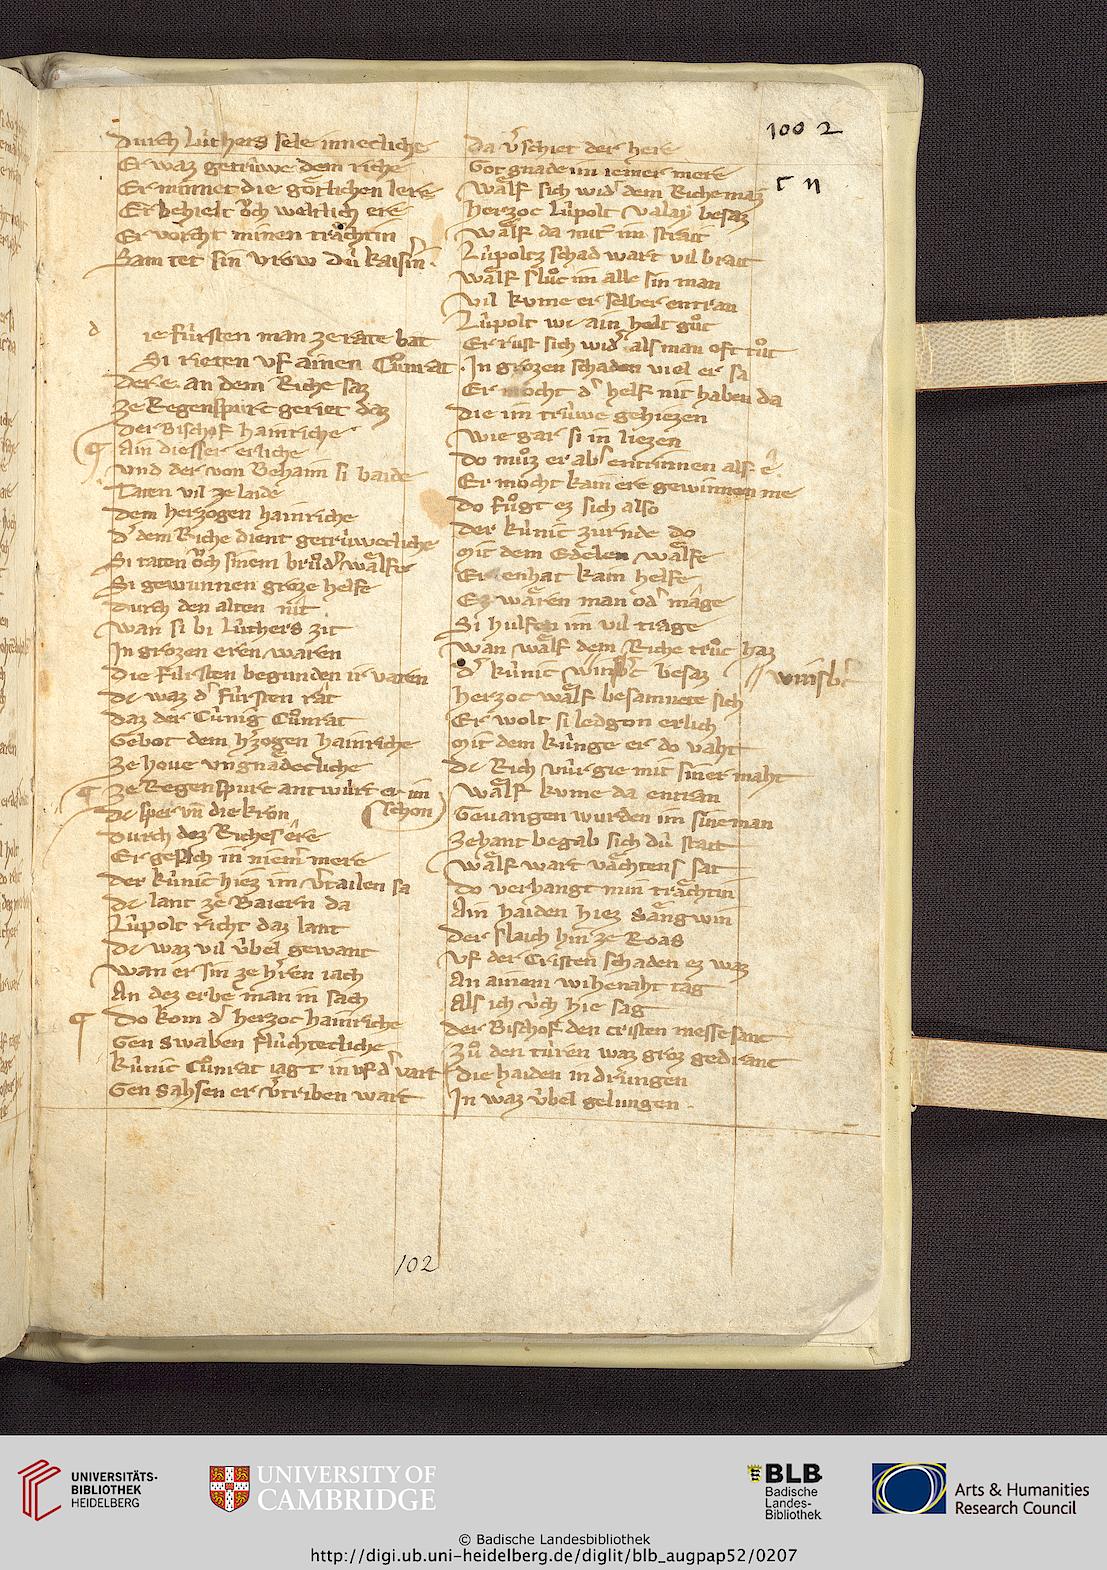 100 2
c n
Durch Lůthers sele innecliche
Er waz getrůwe dem riche
Er minnet die gõtlichen lere
Er behielt õch weltlich ere
Er vorcht minen trãchtin
Sam tet sin vrow dů kaisin
d
ie fůrsten man ze rate bat
Si rieten vf ainen Cůnrat
Der e. an dem Riche saz
Ze Regenspurc geriet daz
Der Bischof hainriche
Ain diesser erliche
Vnd der von Behaim si baide
Taten vil ze laide
Dem herzogen hainriche
D' dem Riche dient getrůwecliche
Si taten õch sinem brůd' wãlfe
Si gewunnen groze helfe
Durch den alten nit
Wan si bi Lůthers zit
In grozen eren waren
Die Fůrsten begunden ir varen
Dc waz d' fůrsten rat
Daz der Cůnig Cůnrat
Gebot dem h'zogen hainriche
Ze houe vngnãdecliche
Ze Regenspurc antwůrt er im
Dc sper vn̄ die kron
schon
Durch dez Riches ere
Er gesach in niem' mere
Der kůnic hiez im v'tailen sa
Dc lant ze Baiern da
Lůpolt richt daz lant
Dc waz vil ůbel gewant
Wan er sin ze h'ren iach
An dez erbe man in sach
Do kom d' herzoc hainriche
Gen Swaben flůchtecliche
Kůnic Cůnrat iagt in vf d' vart
Gen Sahsen er v'triben wart
Da v'schiet der here
Got gnade im iemer mere
Wãlf sich wid' dem Riche maz
Herzoc Lůpolt Valay besaz
Wãlf da mit im strait
Lůpoltz schad wart vil brait
Wãlf slůc im alle sin man
Vil kvme er selber entran
Lůpolt wc ain helt gůt
Er rust sich wid' als man oft tůt
In grozen schaden viel er sa
Er mocht d' helf nit haben da
Die im trůwe gehiezen
Wie gar si in liezen
Do můz er ab' entrinnen als e
Er mocht kain ere gewinnen me
Do fůgt ez sich also
Der kůnic zurnde do
Mit dem Edelen wãlfe
Er enhat kain helfe
Ez wãren man od' mage
Si hulfen im vil trage
Wan wãlf dem Riche trůc haz
D' kůnic winsb'c besaz
winsb'c
Herzoc wãlf besamnete sich
Er wolt si ledgon erlich
Mit dem kůnge er do vaht
Dc Rich můrgie mit siner maht
Wãlf kvme da entran
Geuangen wurden im sine man
Zehant begab sich dů statt
Wãlf wart vãchtens sat
Do verhangt min trãchtin
Ain haiden hiez Sãngwin
Der slaich hin ze Roas
Vf der Cristen schaden ez waz
An ainem wihenaht tag
Als ich ůch hie sag
Der Bischof den cristen messe sanc
Zů den tůren waz groz gedranc
Die haiden in drungen
In waz ůbel gelungen
102
UNIVERSITÄTS-
BIBLIOTHEK
HEIDELBERG
UNIVERSITY OF
CAMBRIDGE
BLB
Badische
Landes-
Bibliothek
Arts & Humanities
Research Council
© Badische Landesbibliothek
http://digi.ub.uni-heidelberg.de/diglit/blb_augpap52/0207